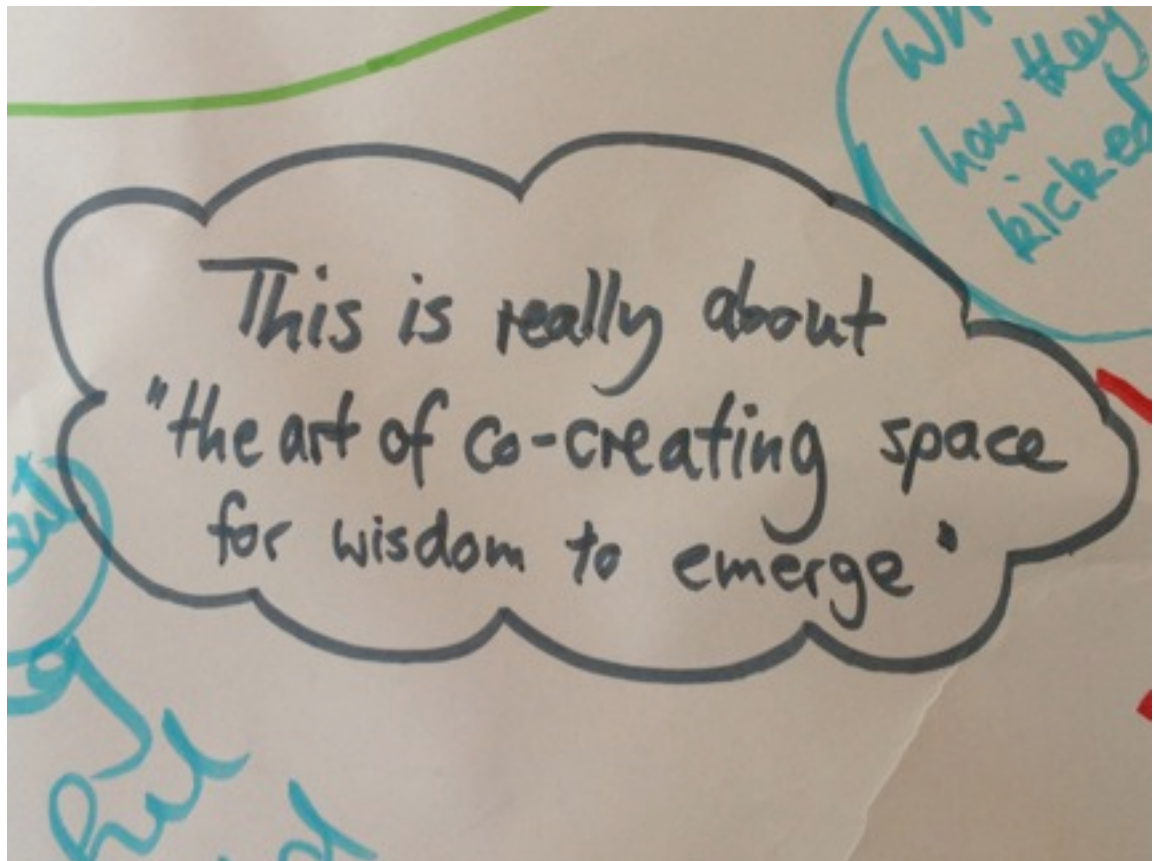 This is really about
"the art of co-creating space
for wisdom to emerge"
how they
kicked